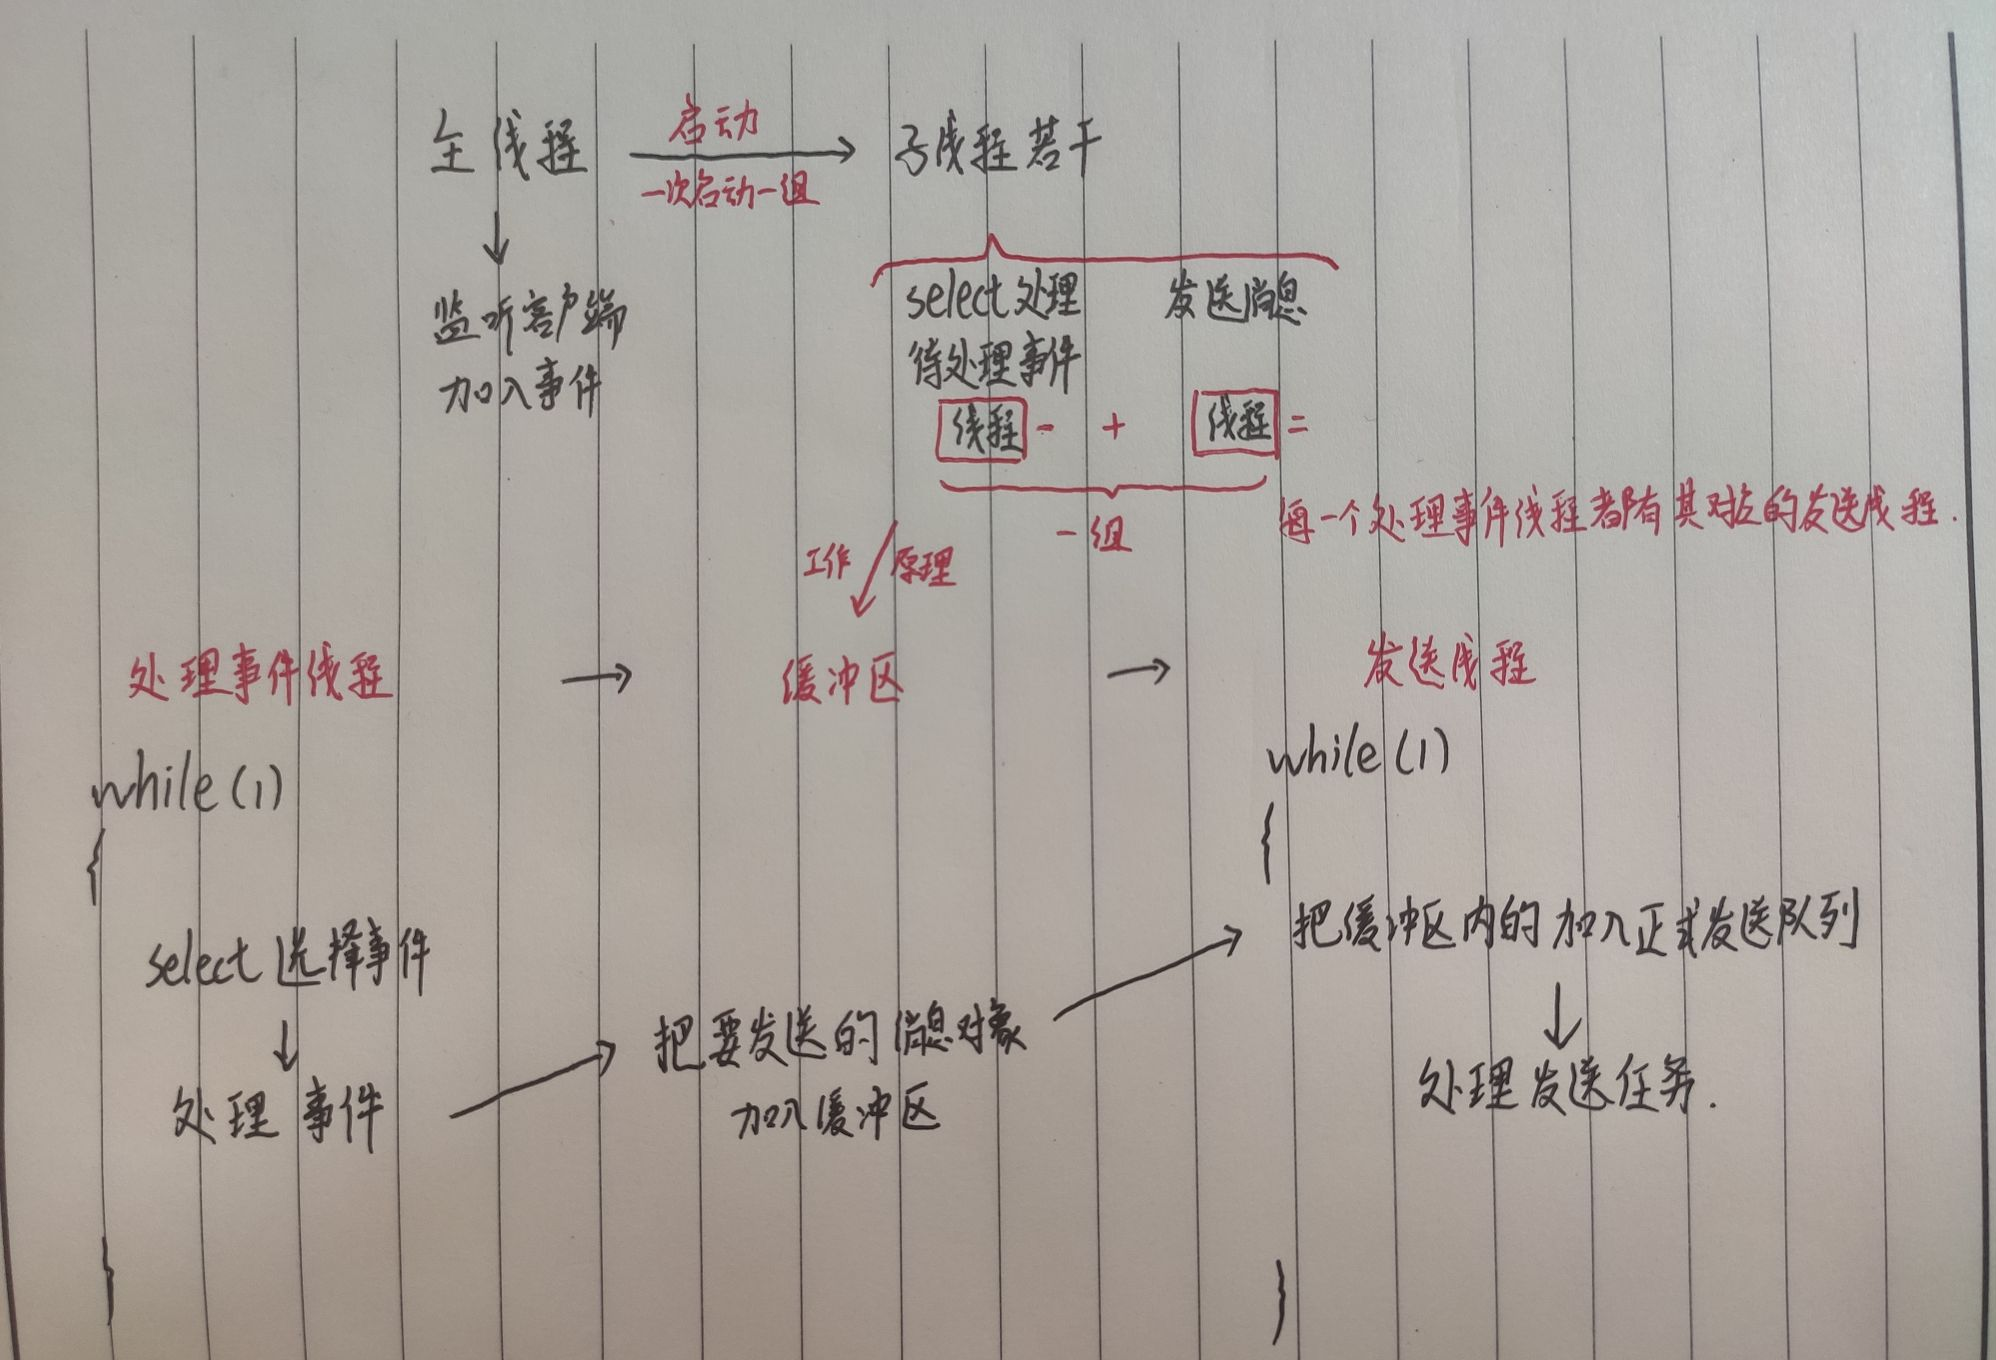 主线程
启动
子线程若干
一次启动一组
监听客户端
加入事件
select处理
待处理事件
发送消息
线程一
+
线程二
一组
每一个处理事件线程都有其对应的发送线程.
工作原理
处理事件线程
缓冲区
发送线程
while(1)
{
select 选择事件
处理事件
}
把要发送的消息对象
加入缓冲区
while(1)
{
把缓冲区内的加入正式发送队列
处理发送任务.
}